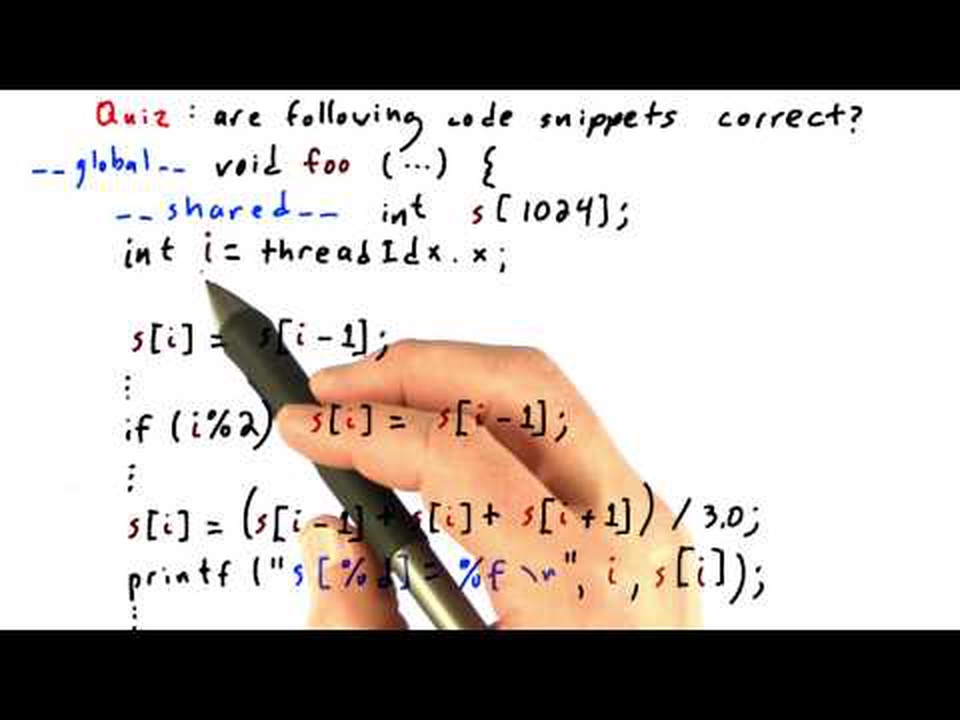 Quiz : are following code snippets correct?
__global__ void foo (...) {
__shared__ int s[1024];
int i = threadIdx.x;
s[i] = s[i-1];
⋮
if (i%2) s[i] = s[i-1];
⋮
s[i] = (s[i-1] + s[i] + s[i+1]) / 3.0;
printf ("s[%d] = %f \n", i, s[i]);
⋮